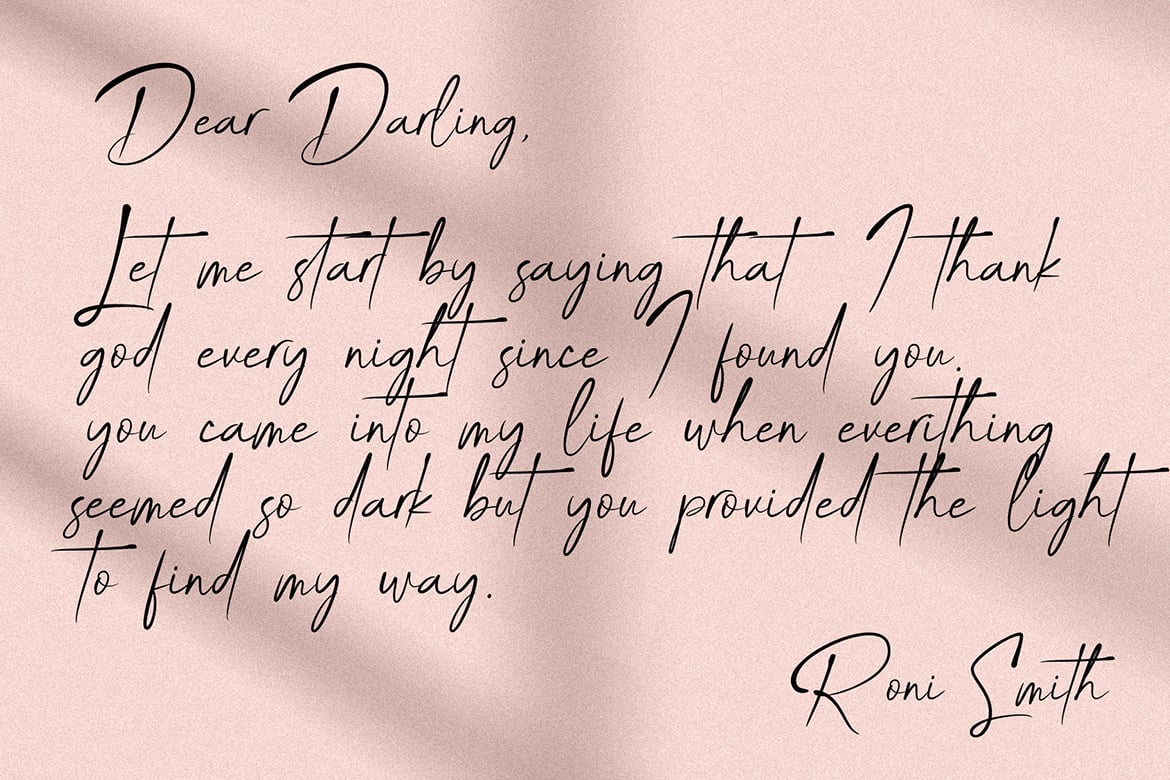 Dear Darling,
Let me start by saying that I thank
god every night since I found you.
you came into my life when everithing
seemed so dark but you provided the light
to find my way.
Roni Smith